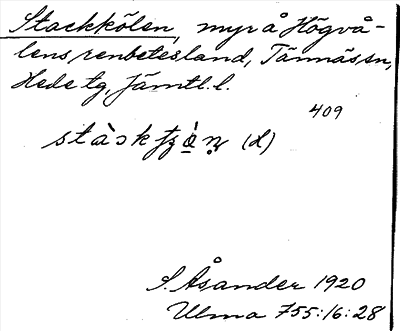 Stackkölen, myr å Högvå-
lens renbetesland, Tännäs sn,
Hede tg, Jämtl. l.
409
(d)
S. Åsander 1920
Ulma 755:16:28